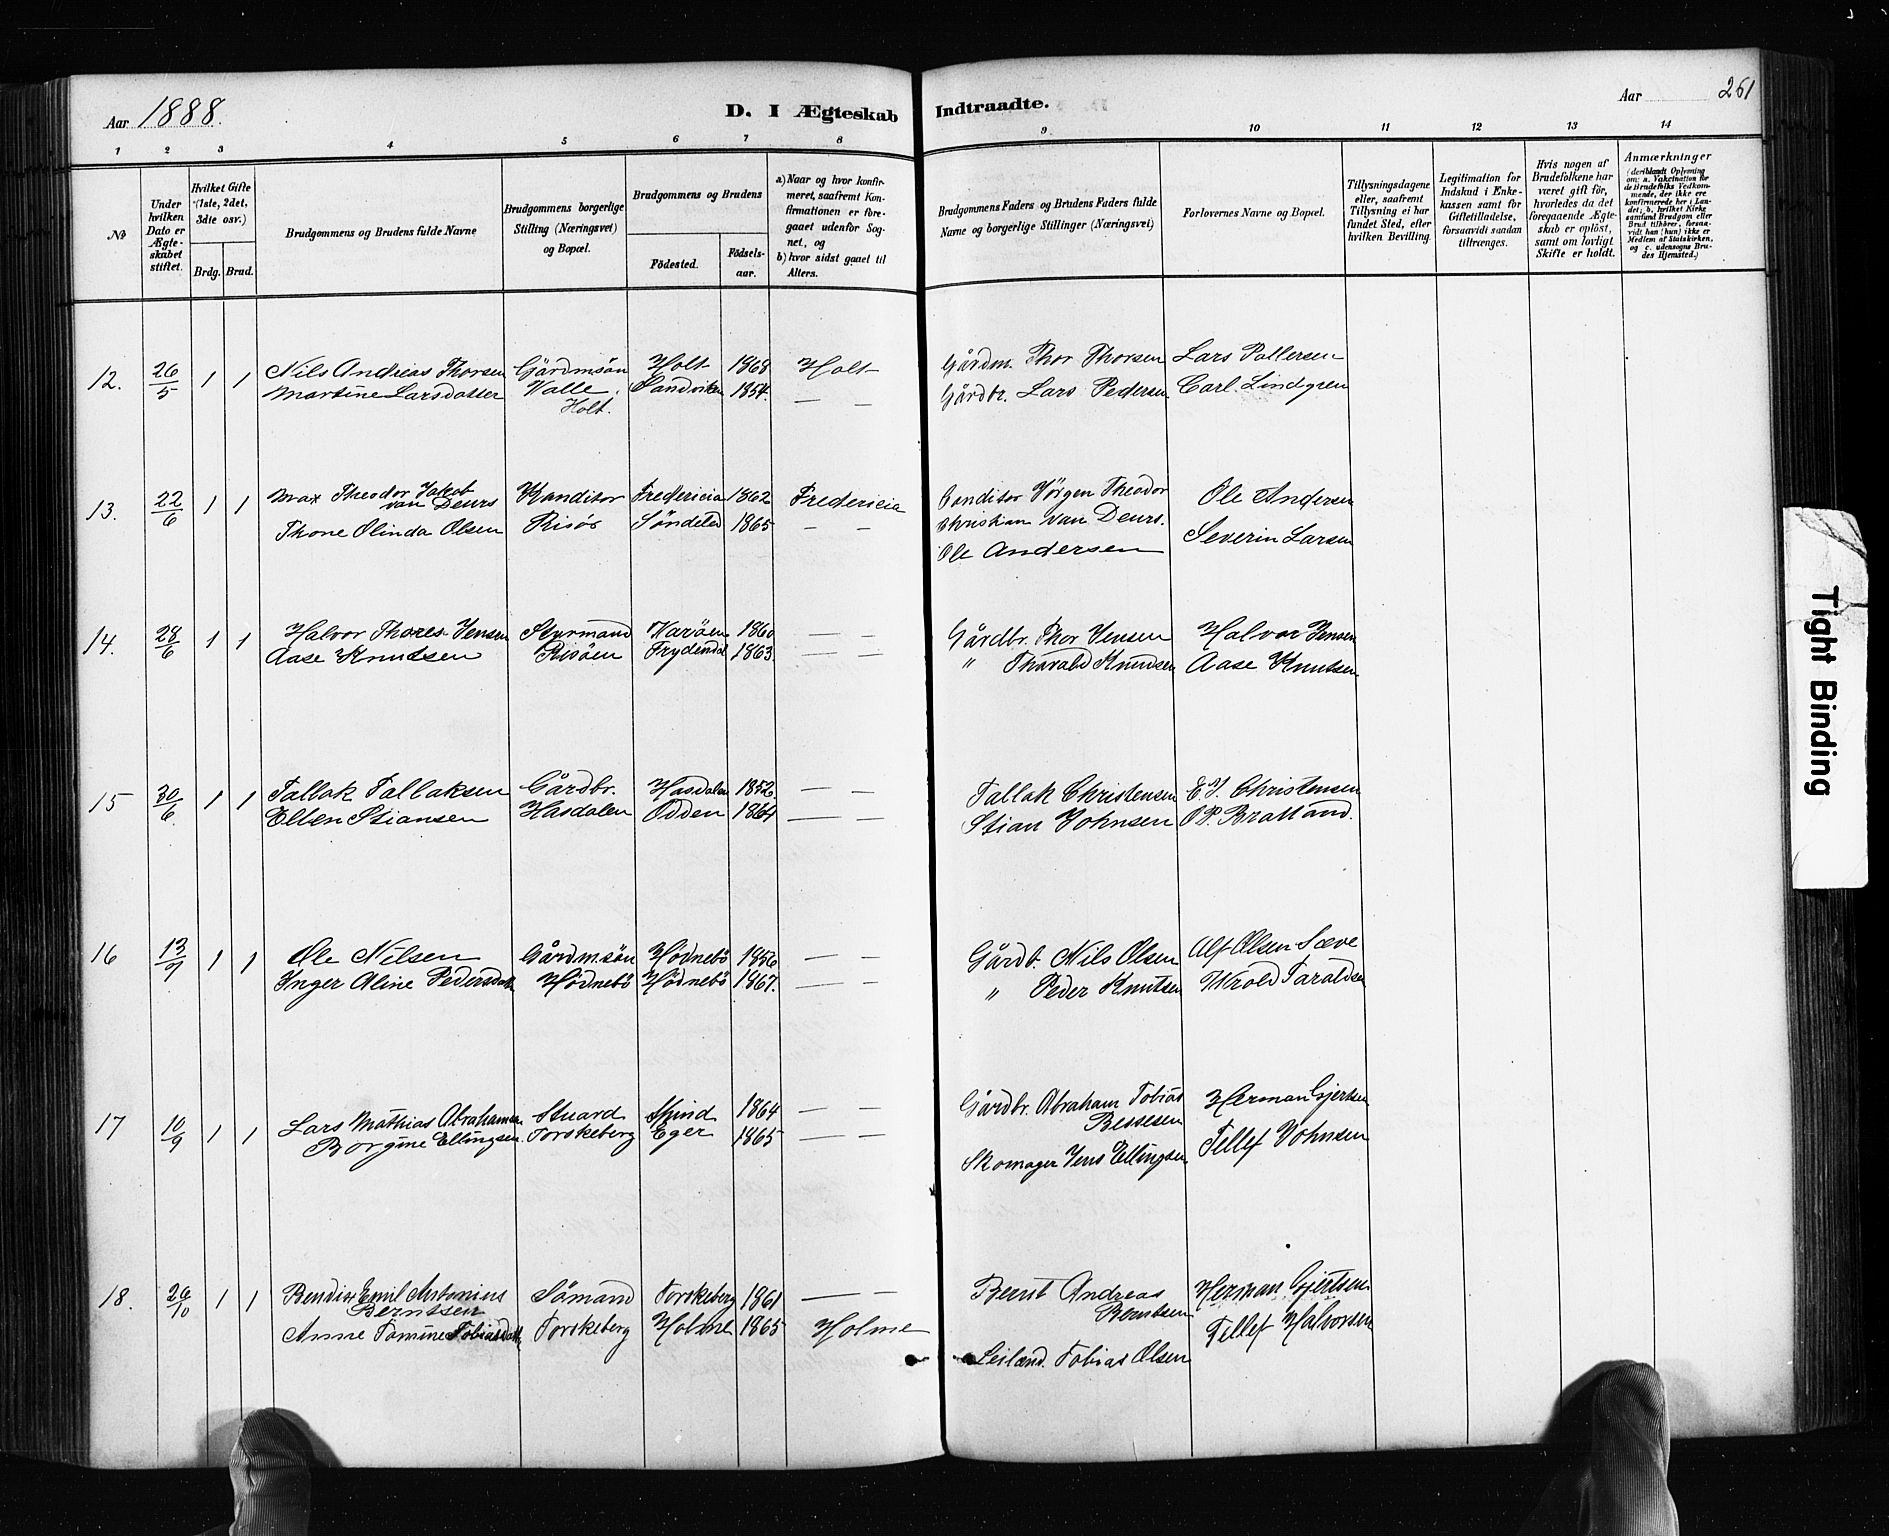 Aar 1888.
D. I Ægteskab Indtraadte.
Aar 261
1 2 3 4 5 6 7 8 9 10 11 12 13 14
№
Under hvilken Dato er Ægteskabet stiftet.
Hvilket Gifte (1ste, 2det, 3die osv.)
Brdg. Brud.
Brudgommens og Brudens fulde Navne
Brudgommens borgerlige Stilling (Næringsvei) og Bopæl.
Brudgommens og Brudens
Fødested. Fødselsaar.
a) Naar og hvor konfirmeret, saafremt Konfirmationen er foregaaet udenfor Sognet, og
b) hvor sidst gaaet til Alters.
Brudgommens Faders og Brudens Faders fulde Navne og borgerlige Stillinger (Næringsvei)
Forlovernes Navne og Bopæl.
Tillysningsdagene eller, saafremt Tillysning ei har fundet Sted, efter hvilken Bevilling.
Legitimation for Indskud i Enkekassen samt for Giftetilladelse, forsaavidt saadan tiltrænges.
Hvis nogen af Brudefolkene har været gift før, hvorledes da det foregaaende Ægteskab er opløst, samt om lovligt Skifte er holdt.
Anmærkninger (deriblandt Oplysning om: a. Vakcination for de Brudefolks Vedkommende, der ikke ere konfirmerede her i Landet; b. hvilket Kirkesamfund Brudgom eller Brud tilhører, forsaavidt han (hun) ikke er Medlem af Statskirken, og c. udensogns Brudes Hjemsted.)
12. 26/5 1 1 Nils Andreas Thorsen Gårdmsön Holt 1868 Holt Gårdm. Thor Thorsen Lars Pallersen
Martine Larsdatter Walle Sandviken 1854. — — Gårdbr. Lars Pedersen Carl. Lindgren
Holt.
13. 22/6 1 1 Max Theodor Jakob van Deurs Kanditor Fredericia 1862 Fredericia Conditor Jörgen Theodor Ole Andersen
Thone Olinda Olsen Risör Söndeled 1865 — — Christian van Deurs. Severin Larsen
Ole Andersen
14. 28/6 1 1 Halvor Thores Jensen Styrmand Narøen 1860 — — Gårdbr. Thor Jensen Halvor Jensen
Aase Knudsen Risöen Frydendal 1863. — — " Tharald Knudsen Aase Knutsen
15 30/6 1 1 Tallak Tallaksen Gårdbr. Hasdalen 1852 — — Tallak Christensen E. J. Christensen
Ellen Stiansen Hasdalen Odden 1864 — — Stian Johnsen O P. Bratland.
16 13/9 1 1 Ole Nilsen Gårdmsön Hödnebö 1856 — — Gårdb. Nils Olsen Alf Olsen Sæve
Inger Aline Pedersdatt Hödnebö Hödnebö 1867. — — " Peder Knutsen Wrold Taraldsen
17 10/9 1 1 Lars Mathias Abrahamsen Stuard Spind 1864 — — Gårdbr. Abraham Tobias Bessesen Herman Gjertsen
Borgine Ellingsen Torskeberg Eger 1865 — — Skomager Jens Ellingsen Tellef Johnsen
18. 26/10 1 1 Bendix Emil Antonius Berntsen Sömand Torskeberg 1861 — — Bernt Andreas Berntsen Herman Gjertsen
Anne Tomine Tobiasdatt Torskeberg Holme 1865 Holme Leilænd. Tobias Olsen Tellef Halvorsen
Tight Binding